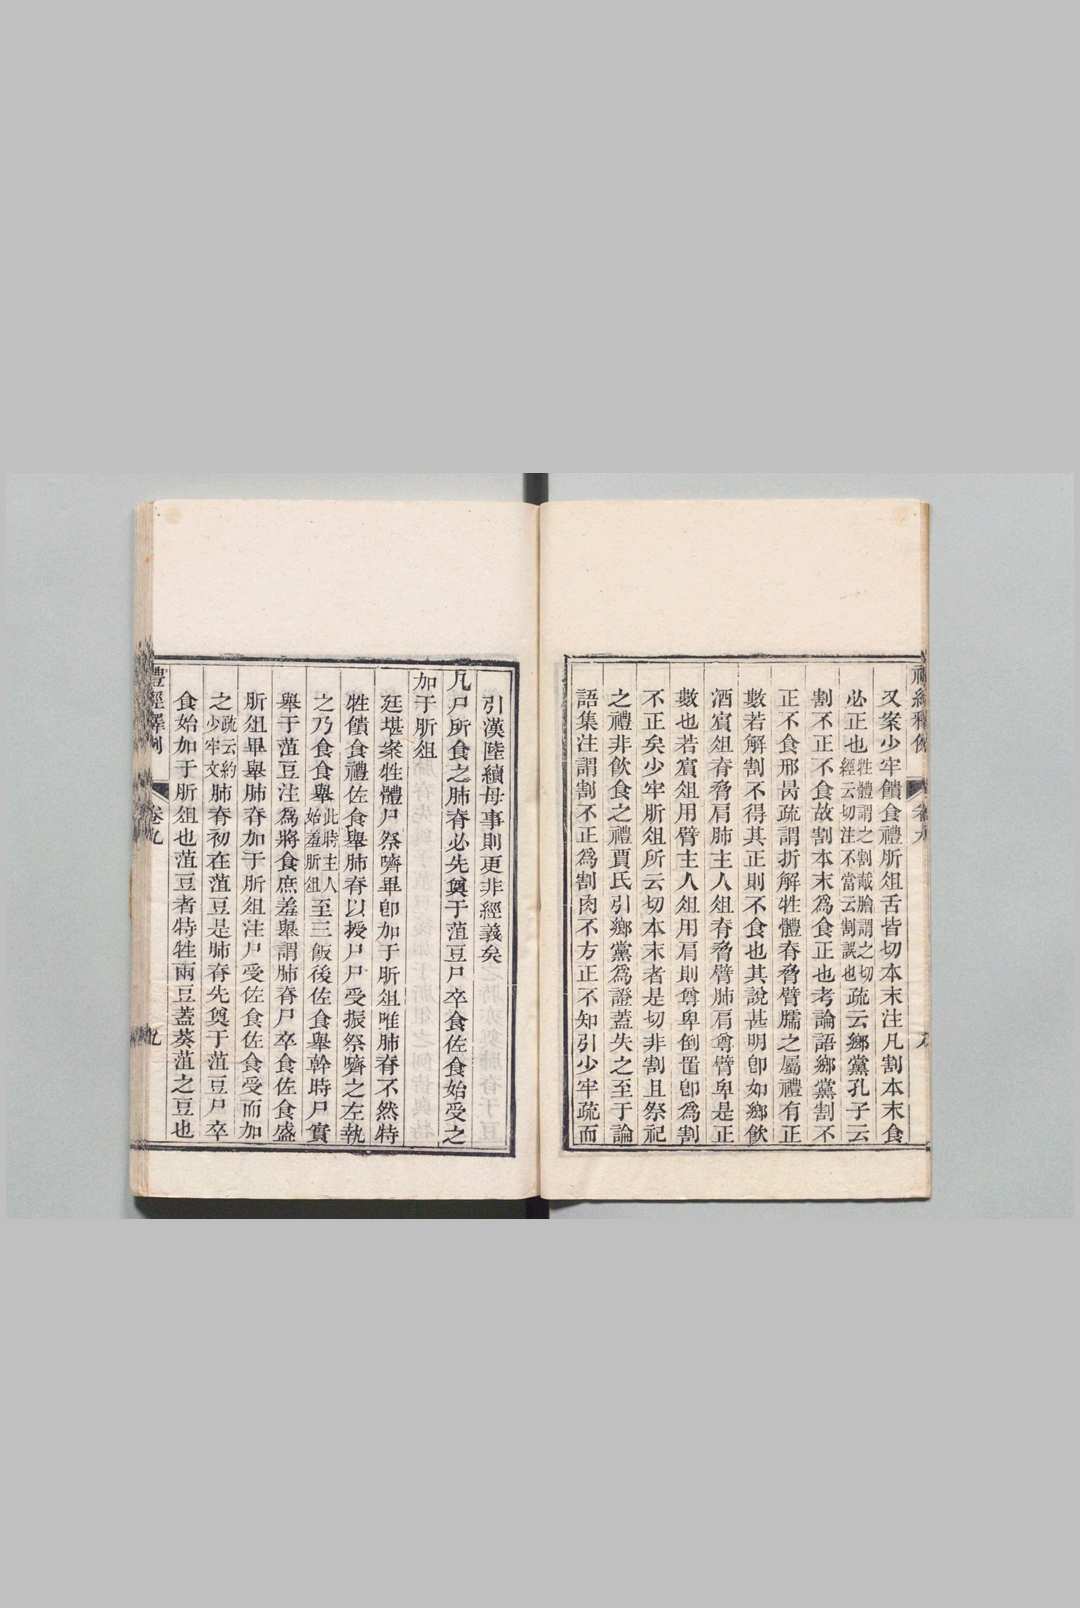 又案少牢饋食禮肵俎舌皆切本末注凡割本末食
必正也牲體謂之割胾膾謂之切經云切注不當云割誤也疏云鄉黨孔子云
割不正不食故割本末爲食正也考論語鄉黨割不
正不食邢昺疏謂折解牲體脊脅臂臑之屬禮有正
數若解割不得其正則不食也其說甚明卽如鄉飲
酒賓俎脊脅肩肺主人俎脊脅臂肺肩尊臂卑是正
數也若賓俎用臂主人俎用肩則尊卑倒置卽爲割
不正矣少牢肵俎所云切本末者是切非割且祭祀
之禮非飲食之禮賈氏引鄉黨爲證蓋失之至于論
語集注謂割不正爲割肉不方正不知引少牢疏而
引漢陸續母事則更非經義矣
凡尸所食之肺脊必先奠于菹豆尸卒食佐食始受之
加于肵俎
廷堪案牲體尸祭嚌畢卽加于肵俎唯肺脊不然特
牲饋食禮佐食舉肺脊以授尸尸受振祭嚌之左執
之乃食食舉此時主人始羞肵俎至三飯後佐食舉幹時尸實
舉于菹豆注爲將食庶羞舉謂肺脊尸卒食佐食盛
肵俎畢舉肺脊加于肵俎注尸受佐食佐食受而加
之疏云約少牢文肺脊初在菹豆是肺脊先奠于菹豆尸卒
食始加于肵俎也菹豆者特牲兩豆蓋葵菹之豆也
禮經釋例
卷九
九